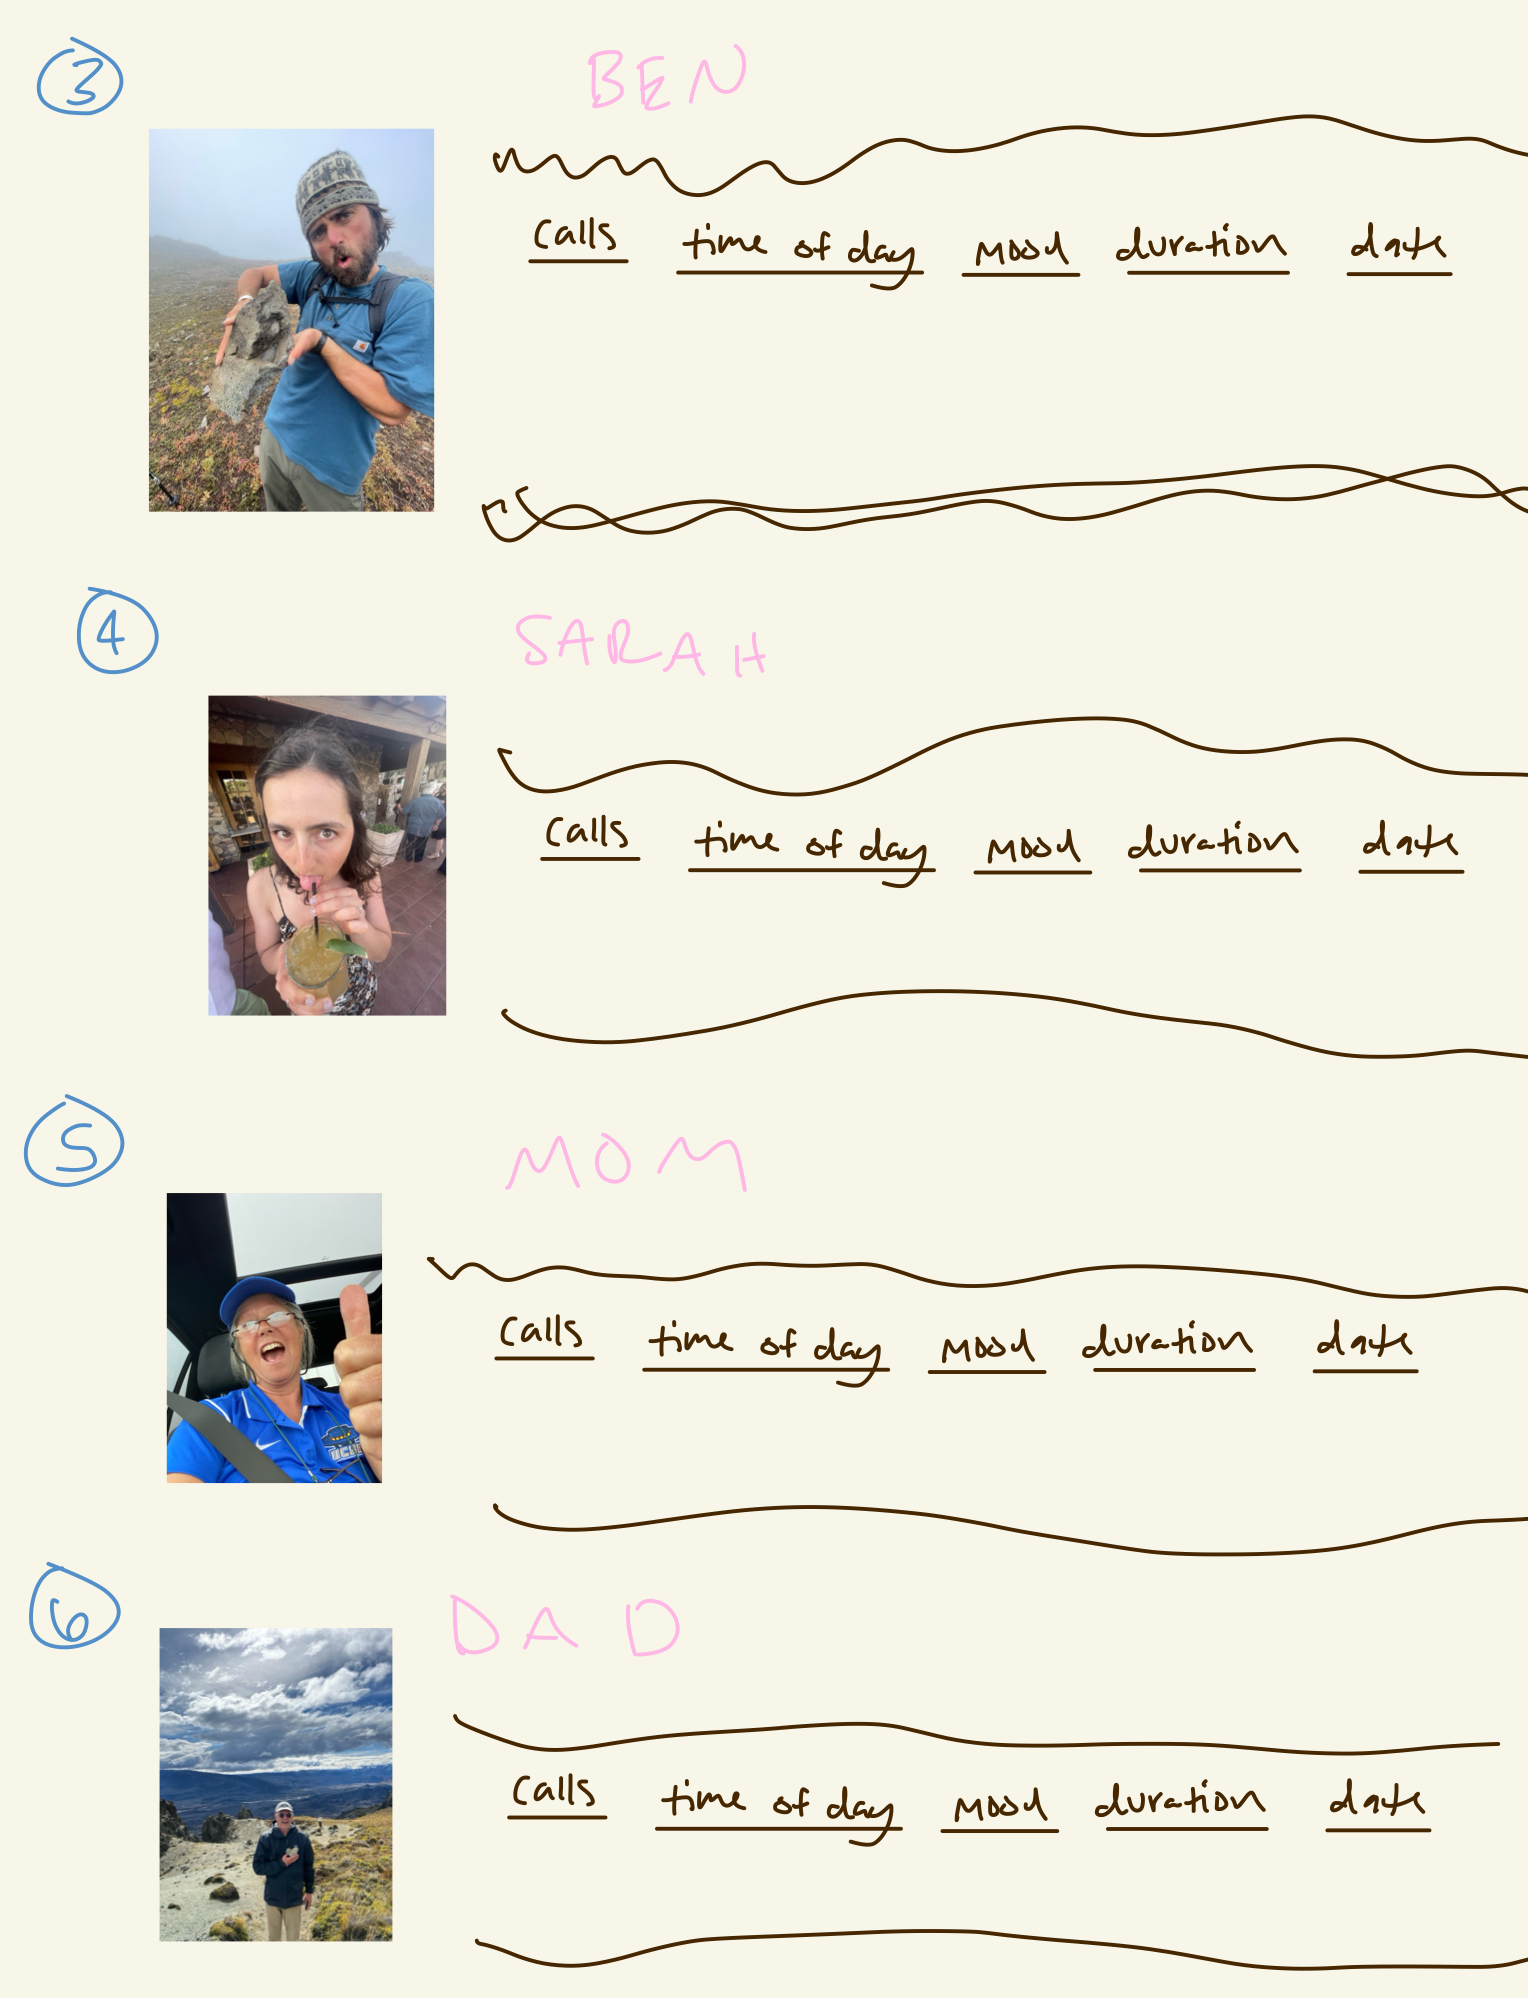 3
BEN
Calls time of day Mood duration date
4
SARAH
Calls time of day Mood duration date
5
MOM
Calls time of day Mood duration date
6
DAD
Calls time of day Mood duration date